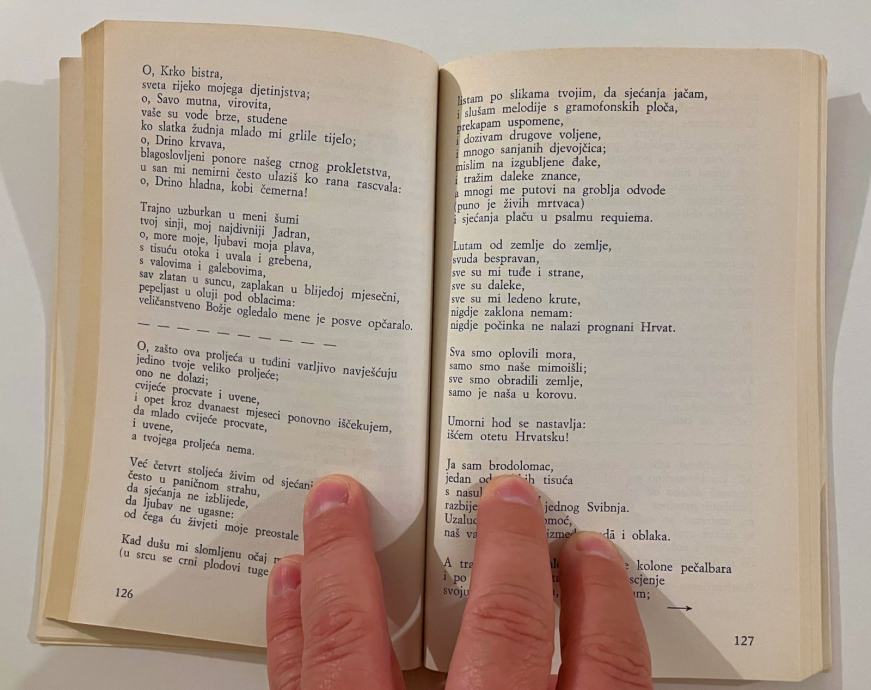 O, Krko bistra,
sveta rijeko mojega djetinjstva;
o, Savo mutna, virovita,
vaše su vode brze, studene
ko slatka žudnja mlado mi grlile tijelo;
o, Drino krvava,
blagoslovljeni ponore našeg crnog prokletstva,
u san mi nemirni često ulaziš ko rana rascvala:
o, Drino hladna, kobi čemerna!
Trajno uzburkan u meni šumi
tvoj sinji, moj najdivniji Jadran,
o, more moje, ljubavi moja plava,
s tisuću otoka i uvala i grebena,
s valovima i galebovima,
sav zlatan u suncu, zaplakan u blijedoj mjesečni,
pepeljast u oluji pod oblacima:
veličanstveno Božje ogledalo mene je posve opčaralo.
— — — — — — — —
O, zašto ova proljeća u tuđini varljivo navješćuju
jedino tvoje veliko proljeće;
ono ne dolazi;
cvijeće procvate i uvene,
i opet kroz dvanaest mjeseci ponovno iščekujem,
da mlado cvijeće procvate,
i uvene,
a tvojega proljeća nema.
Već četvrt stoljeća živim od sjećanj
često u paničnom strahu,
da sjećanja ne izblijede,
da ljubav ne ugasne:
od čega ću živjeti moje preostale
Kad dušu mi slomljenu očaj
(u srcu se crni plodovi tuge
126
listam po slikama tvojim, da sjećanja jačam,
i slušam melodije s gramofonskih ploča,
prekapam uspomene,
i dozivam drugove voljene,
i mnogo sanjanih djevojčica;
mislim na izgubljene đake,
i tražim daleke znance,
a mnogi me putovi na groblja odvode
(puno je živih mrtvaca)
i sjećanja plaču u psalmu requiema.
Lutam od zemlje do zemlje,
svuda bespravan,
sve su mi tuđe i strane,
sve su daleke,
sve su mi ledeno krute,
nigdje zaklona nemam:
nigdje počinka ne nalazi prognani Hrvat.
Sva smo oplovili mora,
samo smo naše mimoišli;
sve smo obradili zemlje,
samo je naša u korovu.
Umorni hod se nastavlja:
išćem otetu Hrvatsku!
Ja sam brodolomac,
jedan od tisuća
s nasuk
razbije jednog Svibnja.
Uzalud pomoć,
naš va između i oblaka.
A kolone pečalbara
i po
svoju
→
127